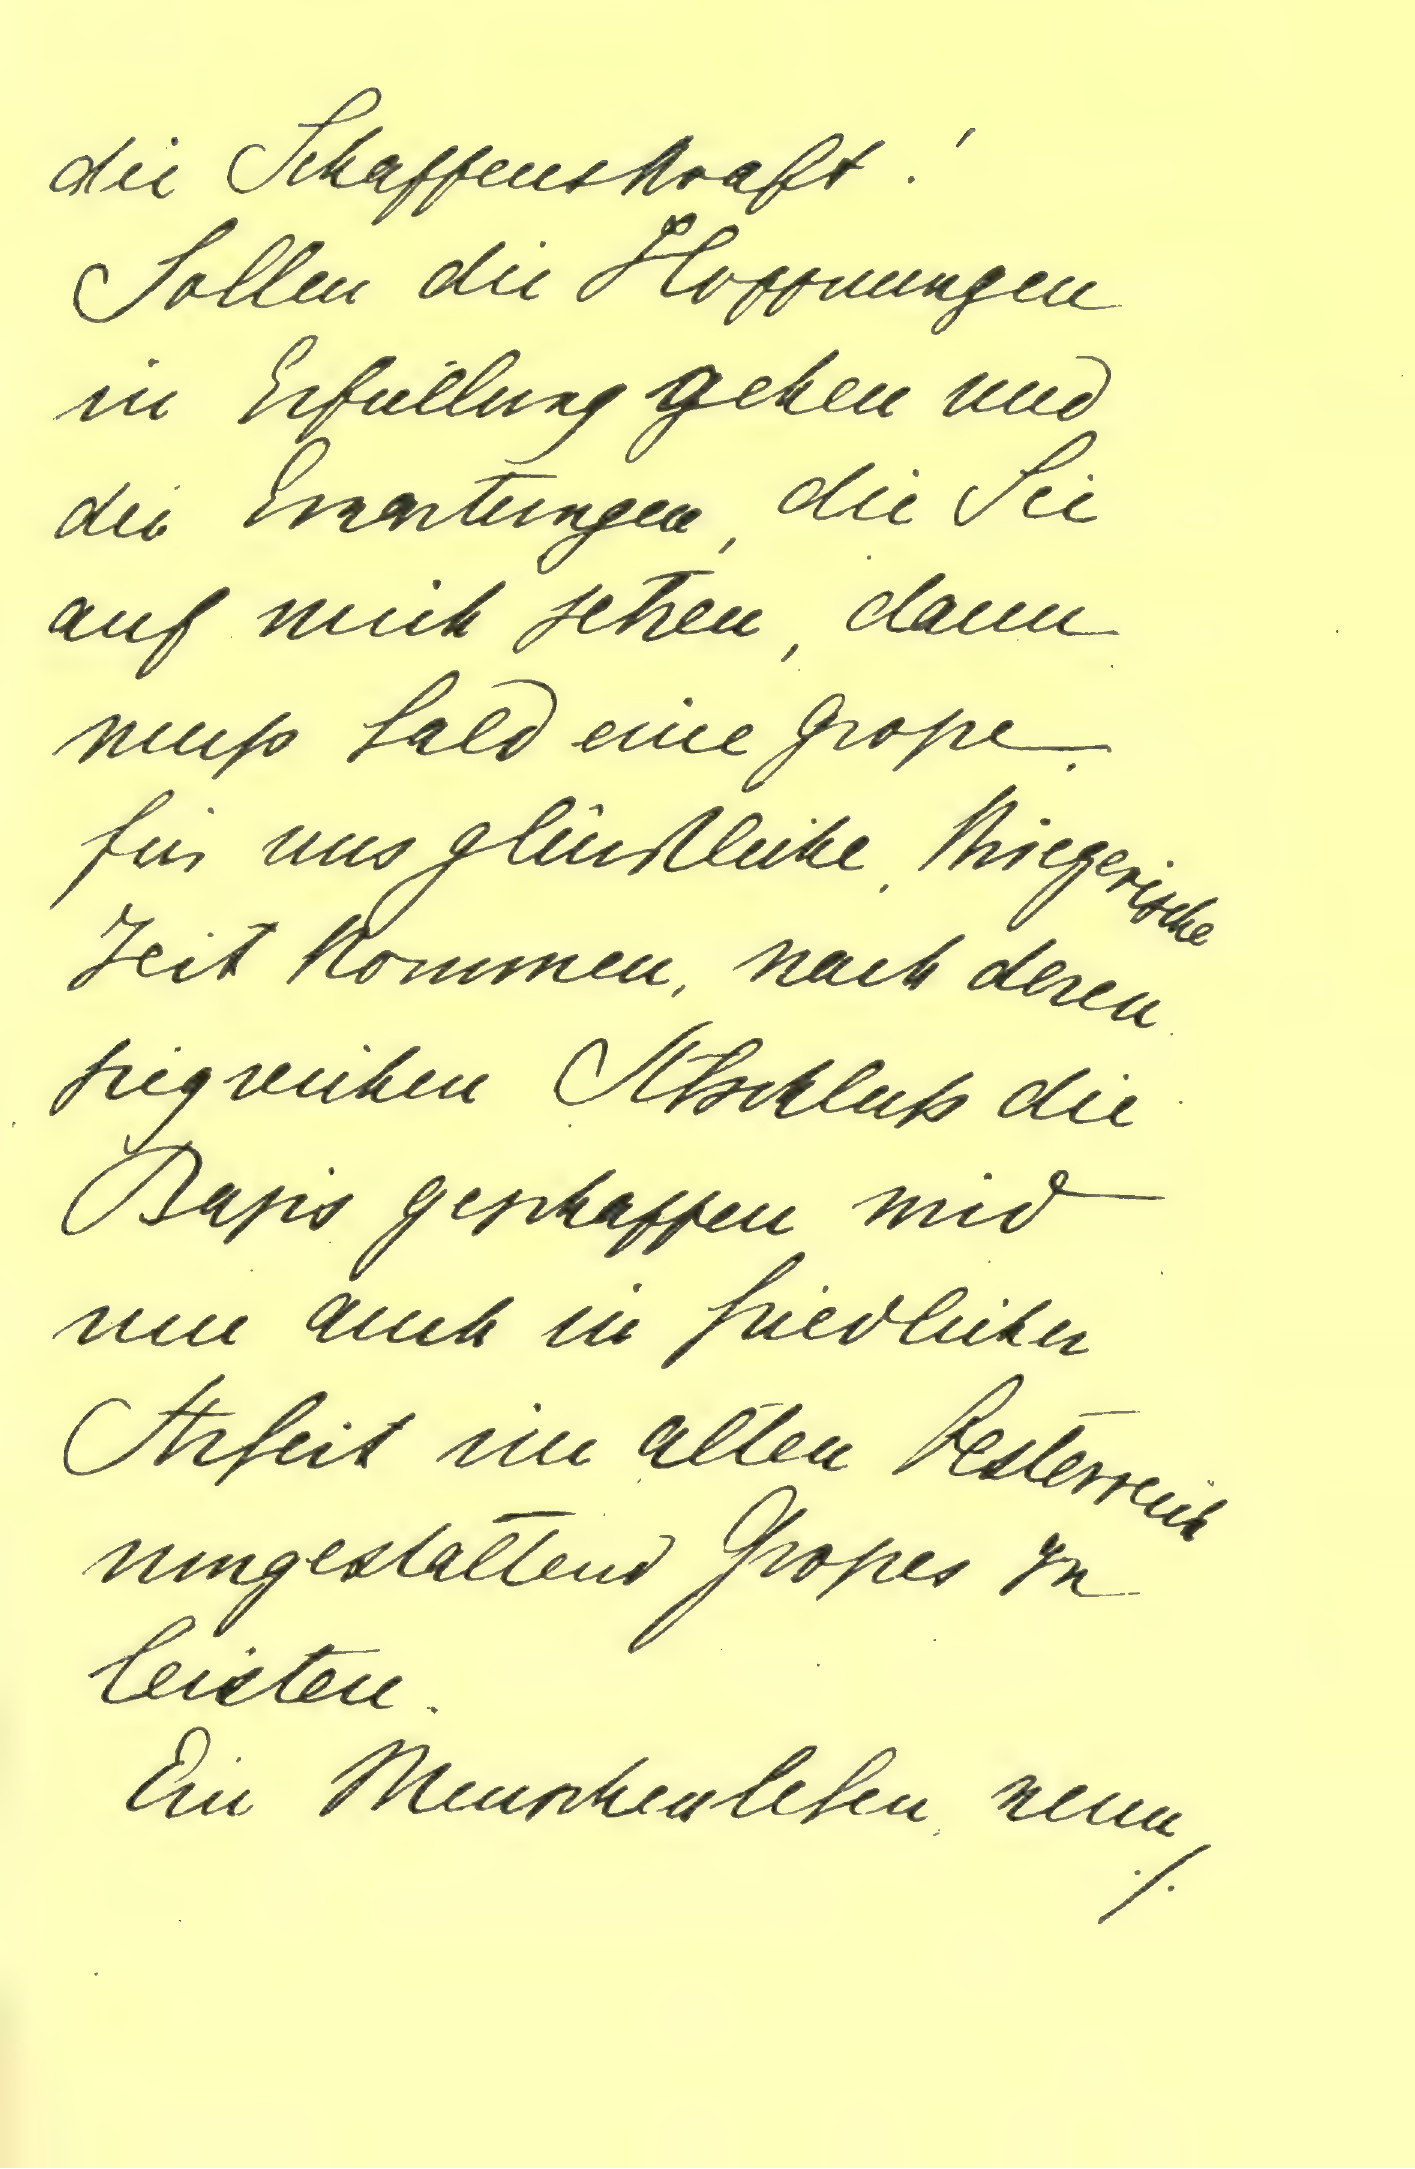 die Schaffenskraft!
Sollen die Hoffnungen
in Erfüllung gehen und
die Erwartungen, die Sie
auf mich setzen, dann
muß bald eine große
für uns glückliche, kriegerische
Zeit kommen, nach deren
siegreichen Abschluß die
Basis geschaffen wird
nun auch in friedlicher
Arbeit im alten Oesterreich
umgestaltend Großes zu
leisten.
Ein Menschenleben, wenn
./.